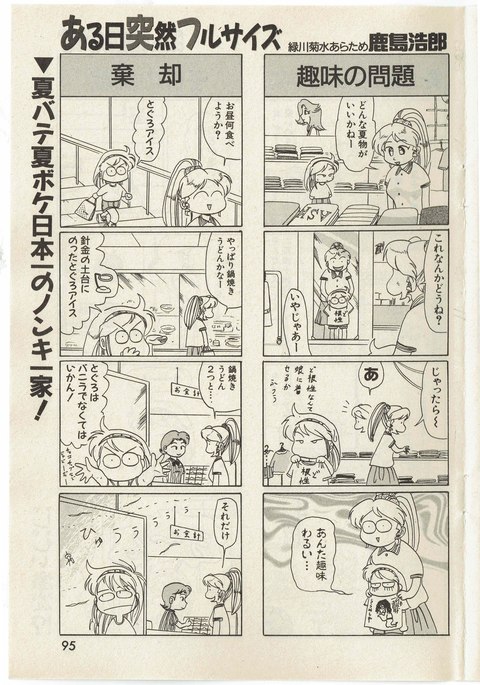 ある日突然フルサイズ
緑川菊水あらため鹿島浩郎
▼夏バテ夏ボケ日本一のノンキ一家！
趣味の問題
どんな夏物が
いいかねー
これなんかどうね？
ど根性
いやじゃあー
じゃったら〜
あ
ど根性なんて
娘に着
せるか
ふつう
ど根性
あんた趣味
わるい…
棄却
お昼何食べ
ようか？
とぐろアイス
やっぱり鍋焼き
うどんかなー
針金の土台に
のったとぐろアイス
鍋焼き
うどん
2つと…
お会計
とぐろは
バニラでなくては
いかん！
それだけ
お会計
ひゅうぅぅ
95